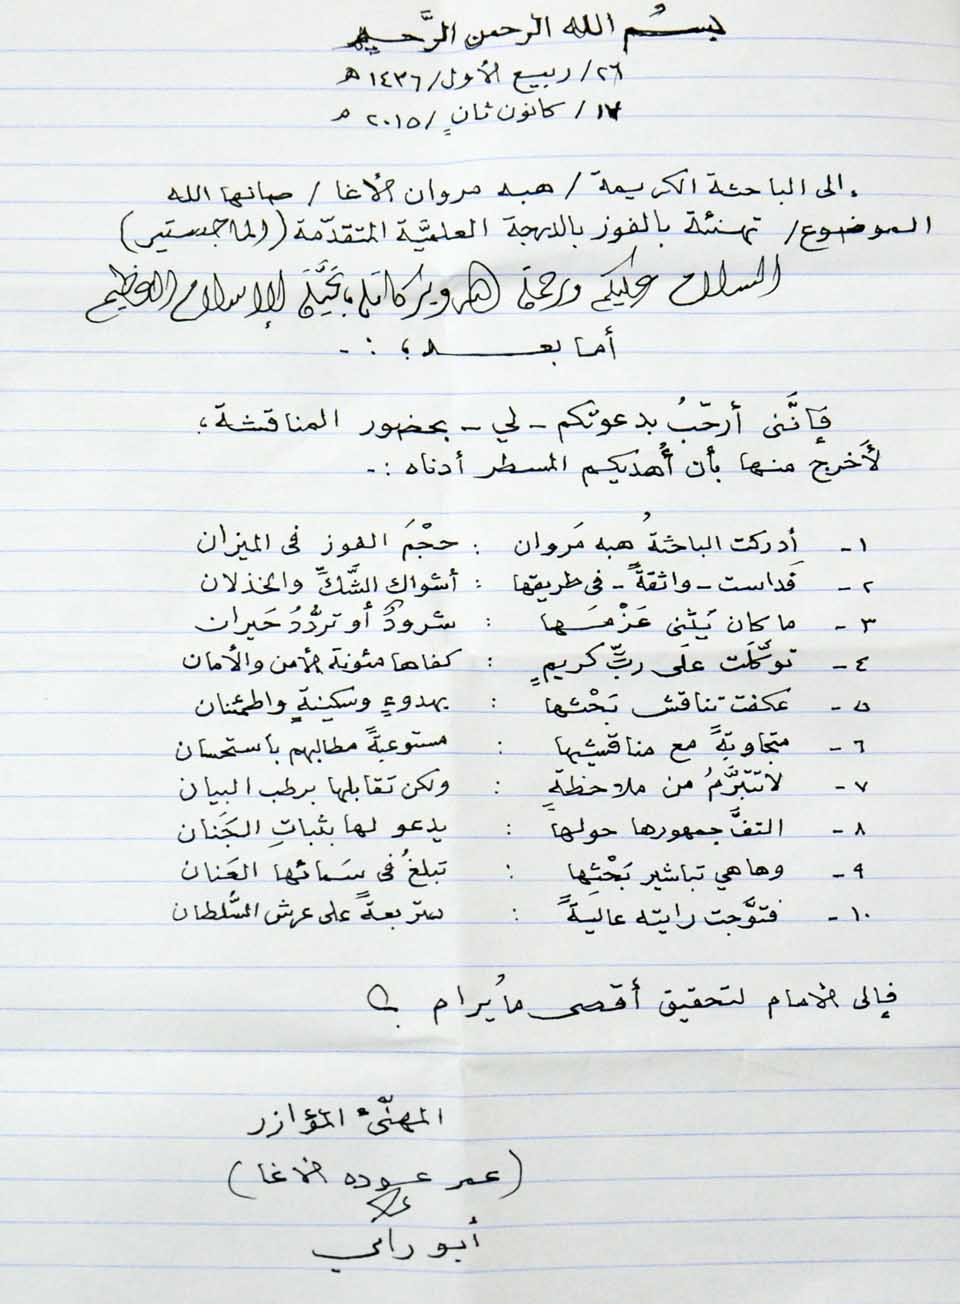 بسم الله الرحمن الرَّحيم
٢٦/ ربيع الأول/ ١٤٣٦ هـ
١٧/ كانون ثانٍ/ ٢٠١٥ م
إلى الباحثة الكريمة/ هبه مروان الأغا/ صانها الله
الموضوع/ تهنئة بالفوز بالدرجة العلميَّة المتقدّمة (الماجستير)
السلام عليكم ورحمة الله وبركاته، بتحيَّة الإسلام العظيم
أما بعـــد؛ : -
فإنَّني أرحّبُ بدعوتكم - لي - بحضور المناقشة؛
لأَخرج منها بأن أُهديكم المسطر أدناه :-
١- أدركت الباحثةُ هبه مَروان : حجْمَ الفوز فى الميزان
٢- فَداست - واثقةً - فى طريقها : أشواك الشَّكِّ والخذلان
٣- ما كان يَثنى عَزْمَـها : شرودٌ أو تردُّدُ حَيران
٤- توكّلَت علَى ربٍّ كريمٍ : كفاها مئونة الأمن والأمان
٥- عكفت تناقش بَحْثها : بهدوءٍ وسكينةٍ واطمئنان
٦- متجاوبةً مع مناقشيها : مستوعبةً مطالبهم باستحسان
٧- لا تتبرَّمُ من ملاحظةٍ : ولكن تقابلها برطب البيان
٨- التفَّ جمهورها حولها : يدعو لها بثباتِ الجَنان
٩- وها هي تباشير بَحْثِها : تبلغُ فى سَمائها العَنان
١٠- فتوَّجت رايته عاليةً : متربعةً على عرش السُّلطان
فإلى الأمام لتحقيق أقصى ما يُرام
المهنّىء المؤازر
(عمر عوده الأغا)
أبو رامي